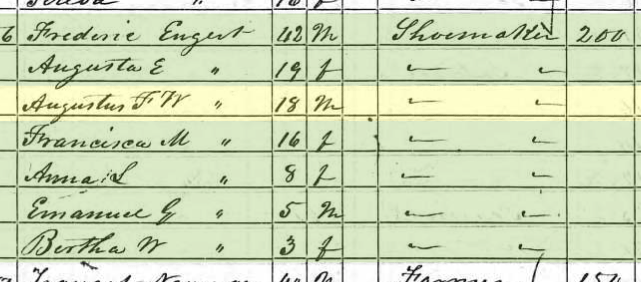 6 Frederic Engert 42 M Shoemaker 200
Augusta E " 19 f " "
Augustus F W " 18 M " "
Francisca M " 16 f " "
Anna L " 8 f " "
Emanuel G " 5 M " "
Bertha W " 3 f " "
Farmer